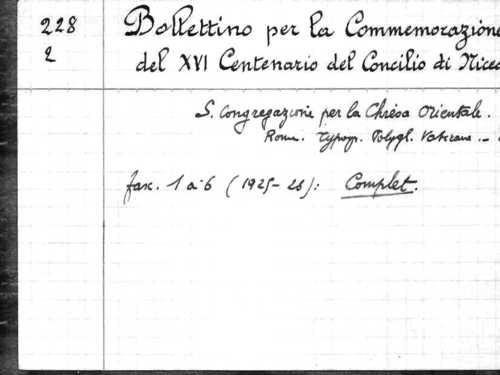 228
2
Bollettino per la Commemorazione
del XVI Centenario del Concilio di Nicea
S. Congregazione per la Chiesa Orientale.
Rome. Typogr. Polygl. Vaticane. –
fasc. 1 à 6 (1925–26): Complet.